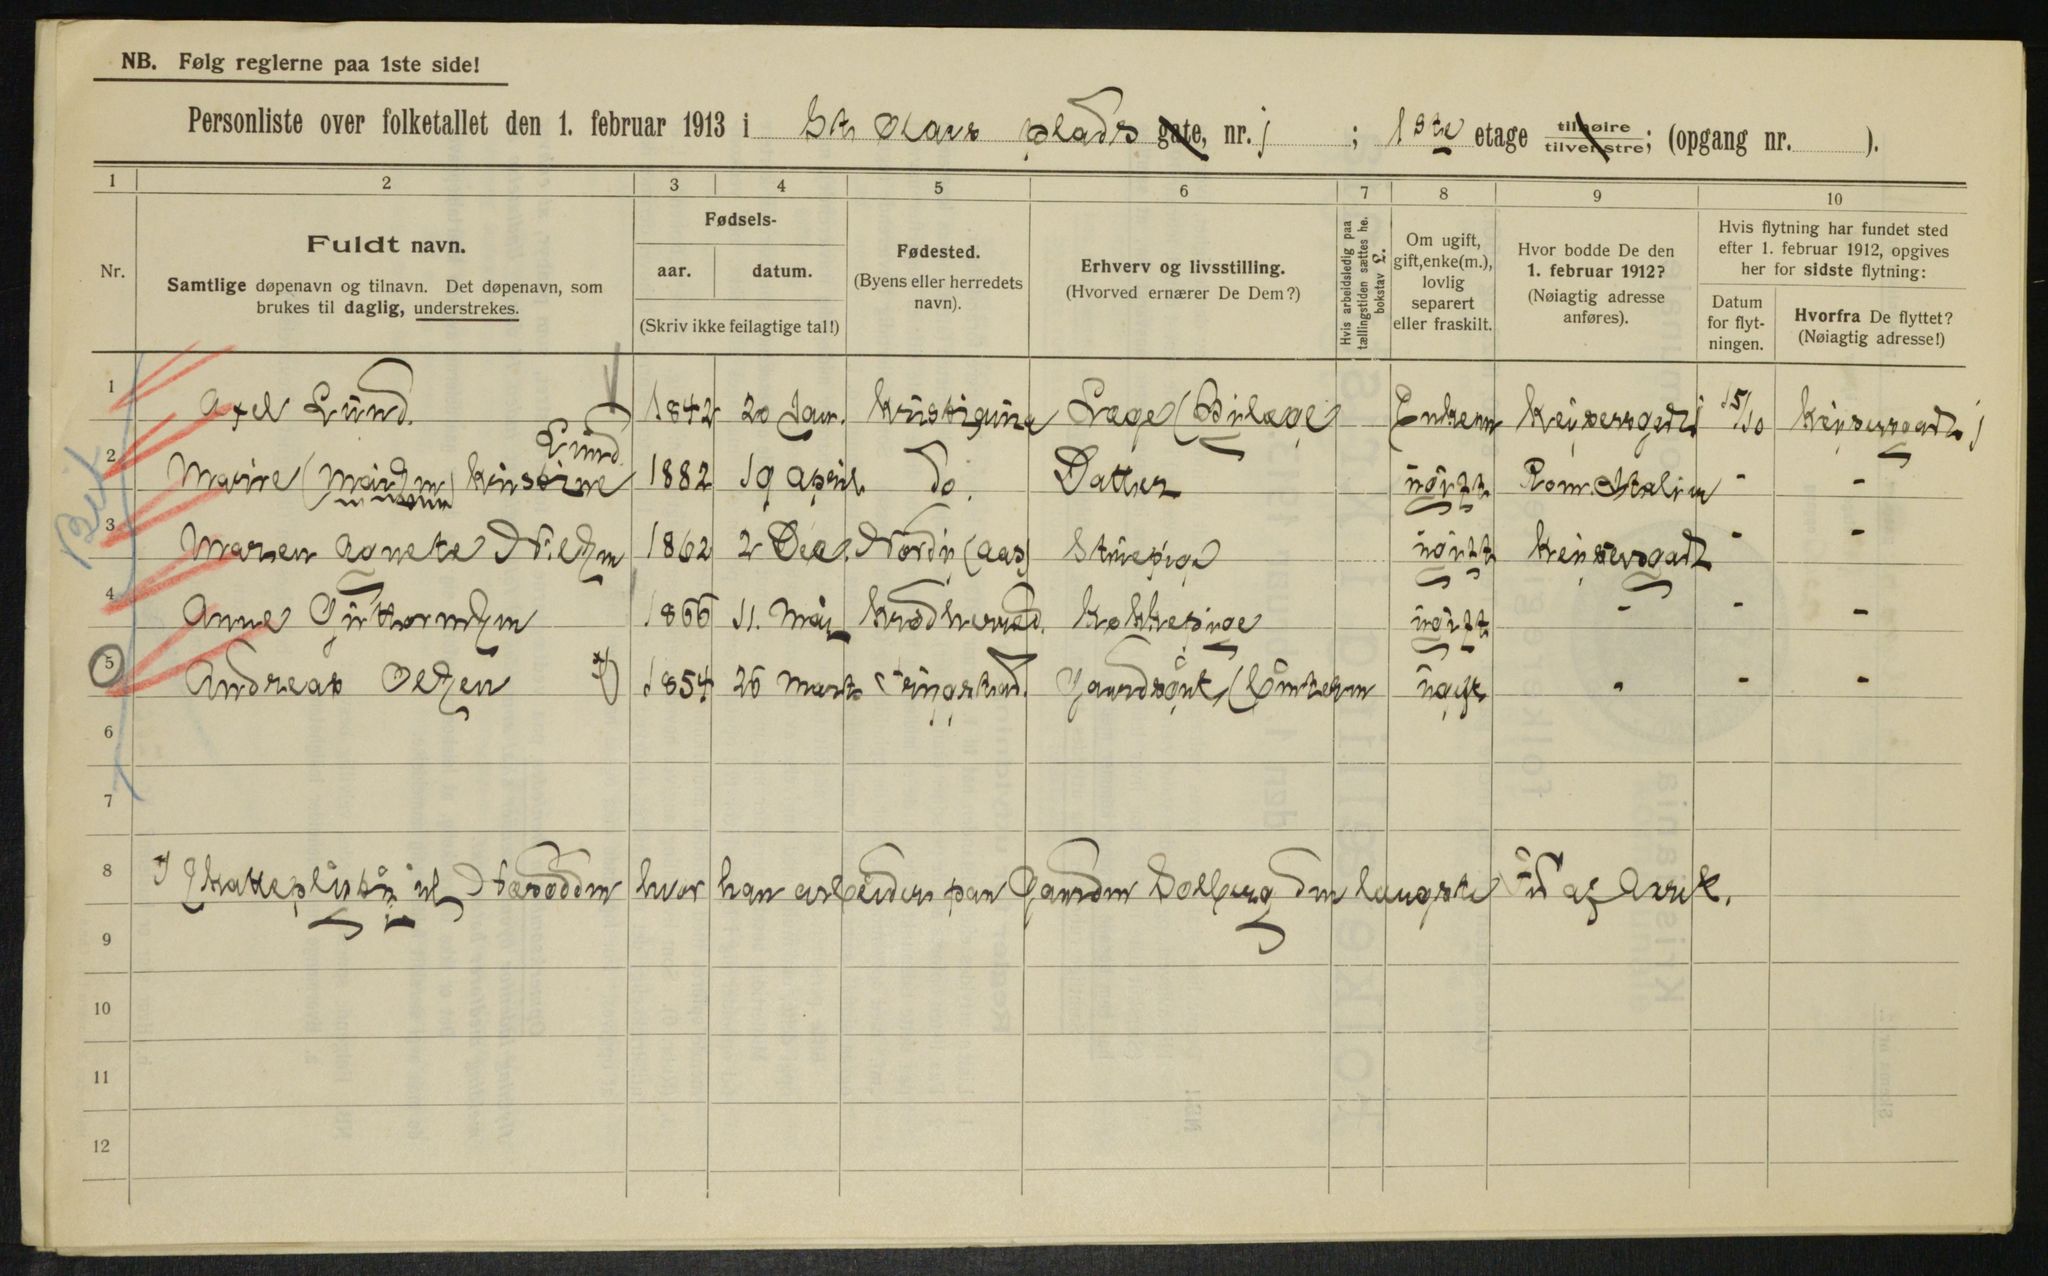 NB. Følg reglerne paa 1ste side!
Personliste over folketallet den 1. februar 1913 i St Olavs plads gate, nr. 1 ; 1ste etage tilhøire tilvenstre; (opgang nr. ).
1 2 3 4 5 6 7 8 9 10
Nr.
Fuldt navn.
Samtlige døpenavn og tilnavn. Det døpenavn, som
brukes til daglig, understrekes.
Fødsels-
aar. datum.
(Skriv ikke feilagtige tal!)
Fødested.
(Byens eller herredets
navn).
Erhverv og livsstilling.
(Hvorved ernærer De Dem?)
Hvis arbeidsledig paa
tællingstiden sættes he.
bokstav L.
Om ugift,
gift,enke(m.),
lovlig
separert
eller fraskilt.
Hvor bodde De den
1. februar 1912?
(Nøiagtig adresse
anføres).
Hvis flytning har fundet sted
efter 1. februar 1912, opgives
her for sidste flytning:
Datum
for flyt-
ningen.
Hvorfra De flyttet?
(Nøiagtig adresse!)
1 Axel Lund. 1842 20 Jan. Kristiania Læge Enkem Keysersgade 1 15/10 Keysersgade 1
Lund
2 Kristine 1882 19 april do. Datter Rom. Italien - -
3 Maren Agnete 1862 2 Dec. Nordby (Aas) Stuepige Keysersgade - -
4 Anne Guttormsen 1866 11. Mai Krødherred. Kokkepige - - -
5 Andreas Olsen *) 1854 26 Marts Gaardsgut ugift - - -
6
7
8 *) Skattepligtig til Næsodden hvor han arbeider paa Gaarden Solberg den længste Tid af Aaret.
9
10
11
12